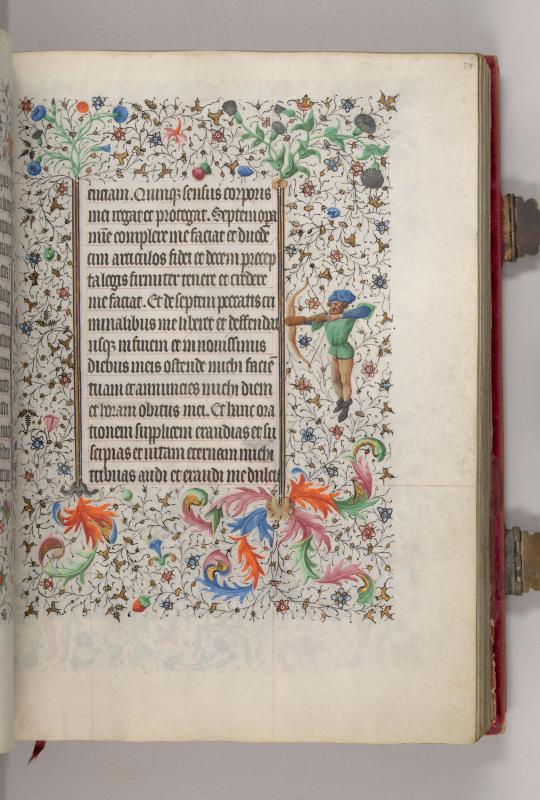 tuciam. Quinqz sensus corporis
mei regat et protegat. Septem opa
mīe complere me faciat et duode
cim articulos fidei et decem precep
ta legis firmiter tenere et credere
me faciat. Et de septem peccatis cri
minalibus me liberet et deffendat
usqz in finem et in novissimis
diebus meis ostende michi faciē
tuam et annuncies michi diem
et horam obitus mei. Et hanc ora
tionem supplicem exaudias et su
scipias et vitam eternam michi
tribuas audi et exaudi me dulcis